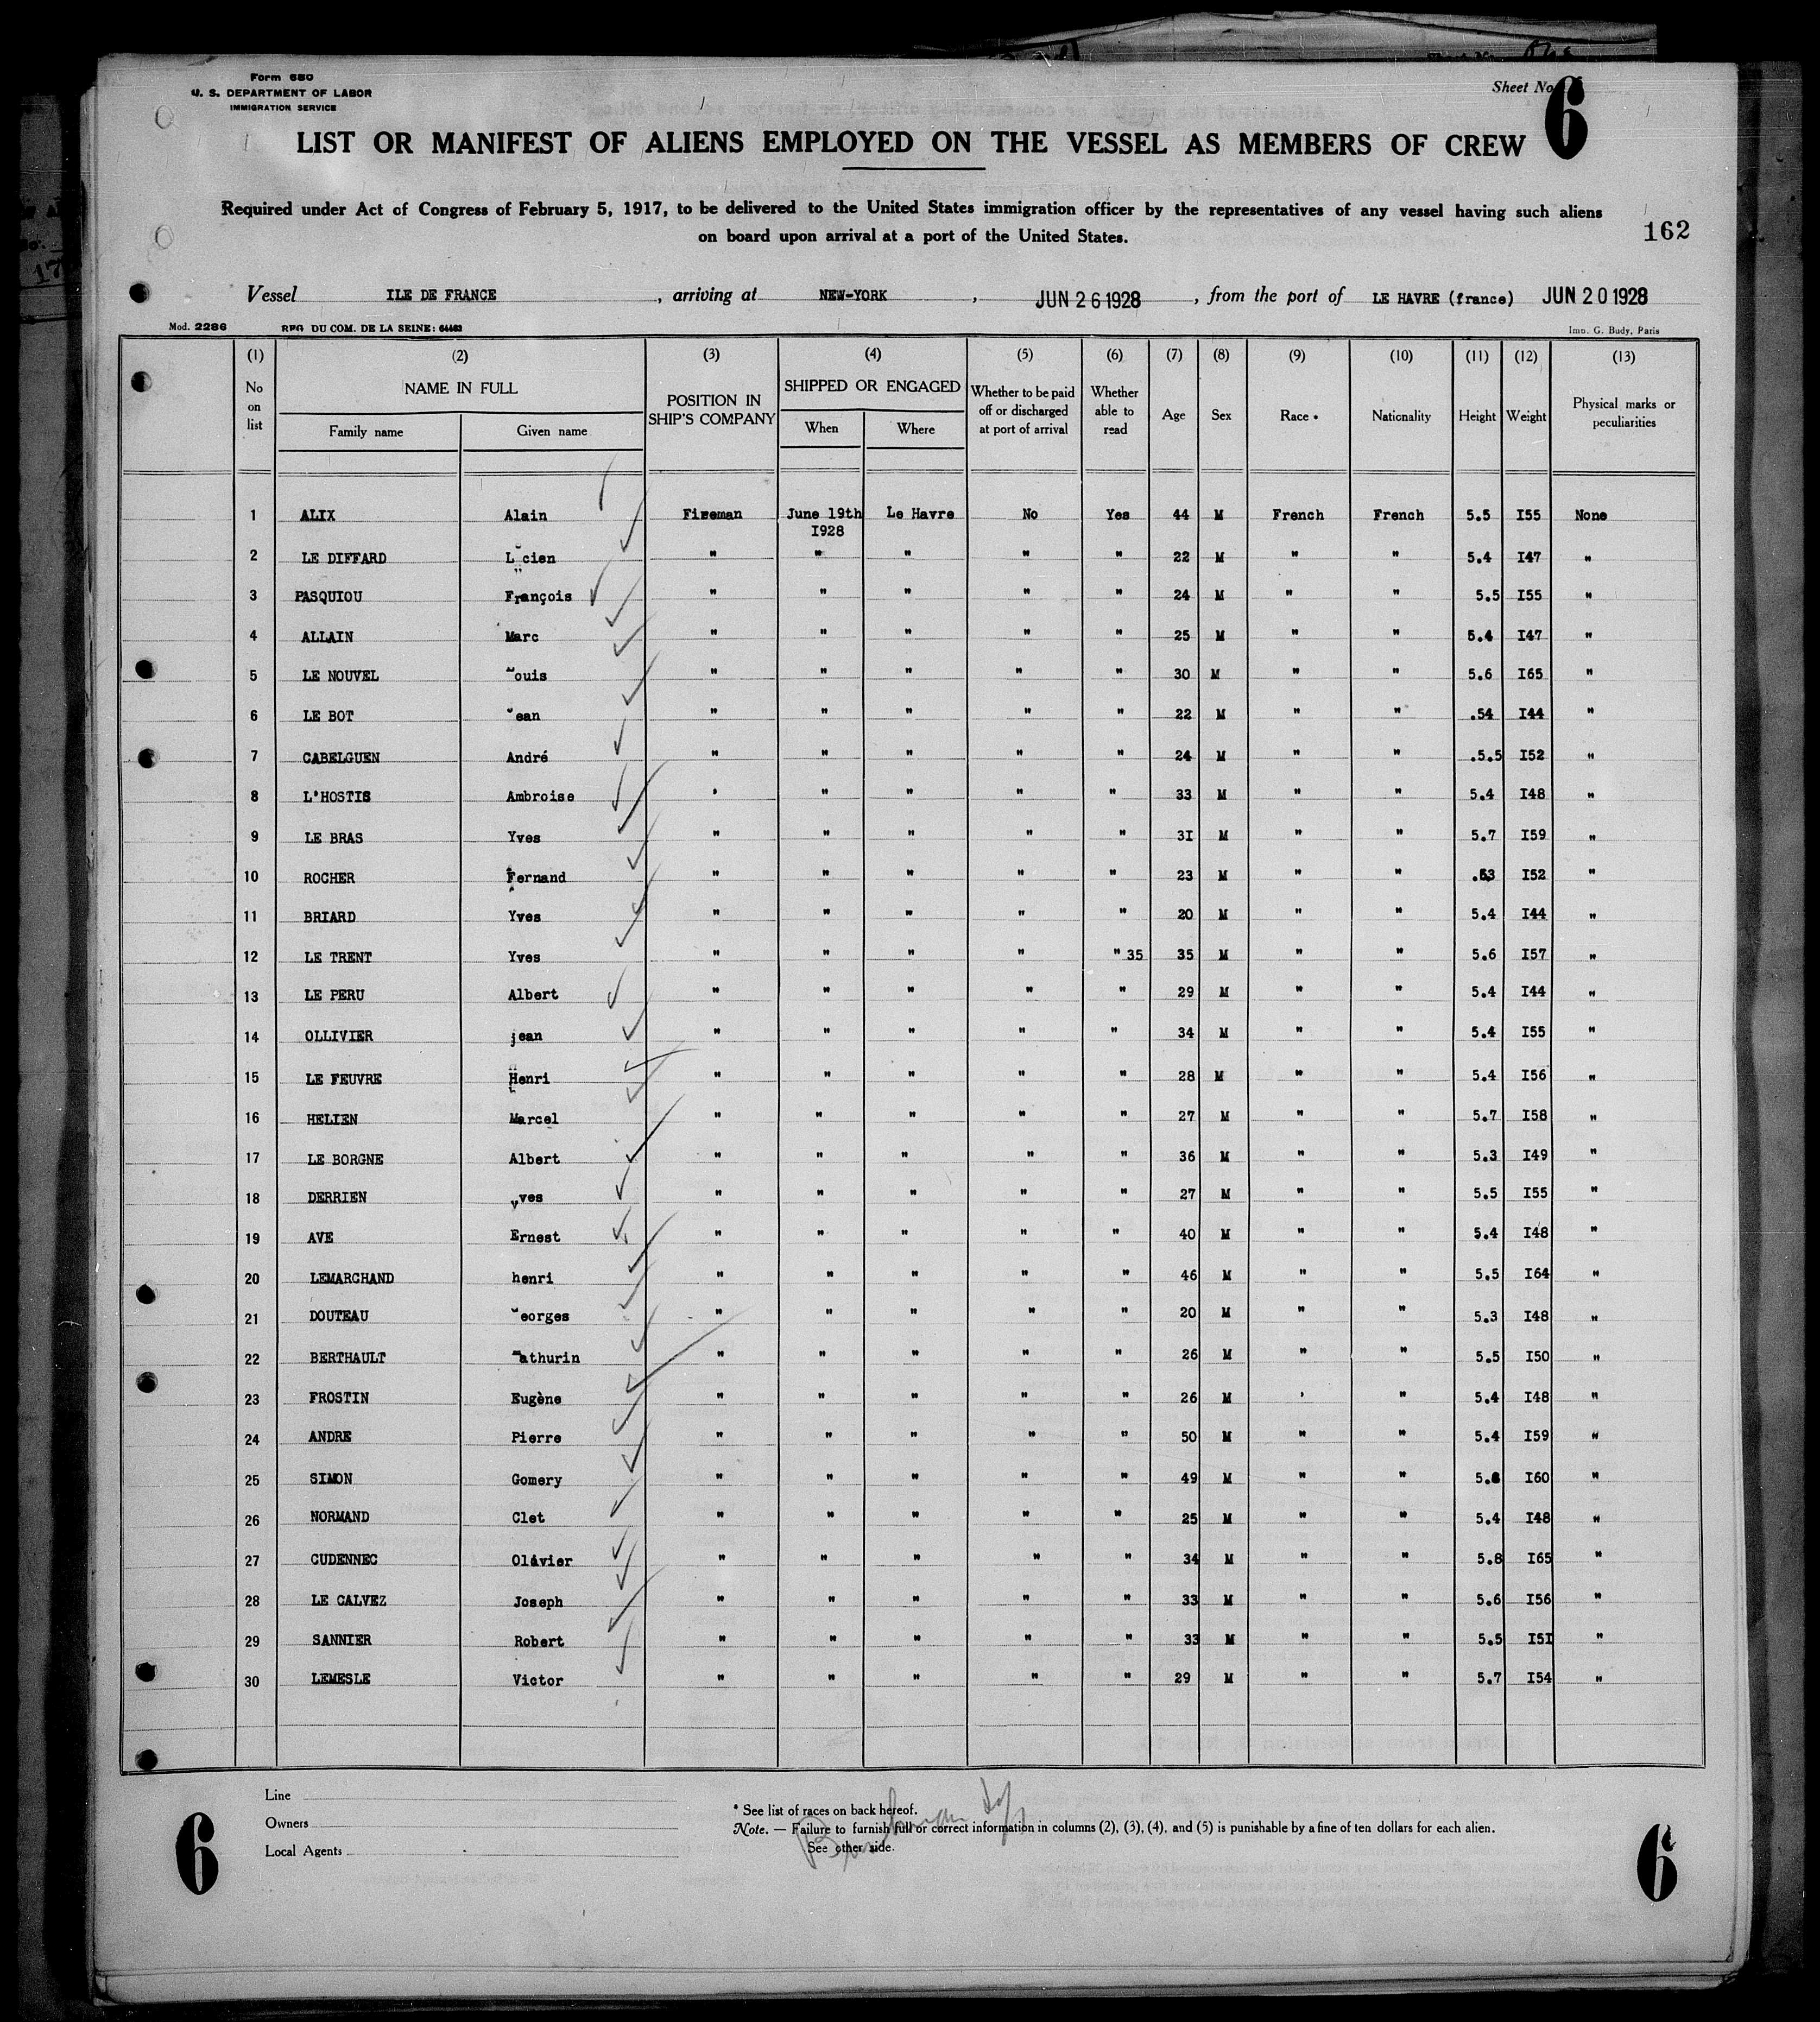 Form 680
U. S. DEPARTMENT OF LABOR
IMMIGRATION SERVICE
Sheet No. 6
LIST OR MANIFEST OF ALIENS EMPLOYED ON THE VESSEL AS MEMBERS OF CREW
Required under Act of Congress of February 5, 1917, to be delivered to the United States immigration officer by the representatives of any vessel having such aliens
on board upon arrival at a port of the United States.
162
Vessel ILE DE FRANCE , arriving at NEW-YORK , JUN 26 1928 , from the port of LE HAVRE (france) JUN 20 1928
Mod. 2286 REG DU COM. DE LA SEINE: 64483 Imp. G. Budy, Paris
(1) (2) (3) (4) (5) (6) (7) (8) (9) (10) (11) (12) (13)
No on list NAME IN FULL Family name Given name POSITION IN SHIP'S COMPANY SHIPPED OR ENGAGED When Where Whether to be paid off or discharged at port of arrival Whether able to read Age Sex Race * Nationality Height Weight Physical marks or peculiarities
1 ALIX Alain Fireman June 19th I928 Le Havre No Yes 44 M French French 5.5 I55 None
2 LE DIFFARD Lucien " " " " " 22 M " " 5.4 I47 "
3 PASQUIOU François " " " " " 24 M " " 5.5 I55 "
4 ALLAIN Marc " " " " " 25 M " " 5.4 I47 "
5 LE NOUVEL Louis " " " " " 30 M " " 5.6 I65 "
6 LE BOT Jean " " " " " 22 M " " .54 I44 "
7 CABELGUEN André " " " " " 24 M " " .5.5 I52 "
8 L'HOSTIS Ambroise ' " " " " 33 M " " 5.4 I48 "
9 LE BRAS Yves " " " " " 3I M " " 5.7 I59 "
10 ROCHER Fernand " " " " " 23 M " " .53 I52 "
11 BRIARD Yves " " " " " 20 M " " 5.4 I44 "
12 LE TRENT Yves " " " " " 35 35 M " " 5.6 I57 "
13 LE PERU Albert " " " " " 29 M " " 5.4 I44 "
14 OLLIVIER jean " " " " " 34 M " " 5.4 I55 "
15 LE FEUVRE Henri " " " " " 28 M " " 5.4 I56 "
16 HELIEN Marcel " " " " " 27 M " " 5.7 I58 "
17 LE BORGNE Albert " " " " " 36 M " " 5.3 I49 "
18 DERRIEN Yves " " " " " 27 M " " 5.5 I55 "
19 AVE Ernest " " " " " 40 M " " 5.4 I48 "
20 LEMARCHAND henri " " " " " 46 M " " 5.5 I64 "
21 DOUTEAU Georges " " " " " 20 M " " 5.3 I48 "
22 BERTHAULT Mathurin " " " " " 26 M " " 5.5 I50 "
23 FROSTIN Eugène " " " " " 26 M ' " 5.4 I48 "
24 ANDRE Pierre " " " " " 50 M " " 5.4 I59 "
25 SIMON Gomery " " " " " 49 M " " 5. I60 "
26 NORMAND Clet " " " " " 25 M " " 5.4 I48 "
27 CUDENNEC Olivier " " " " " 34 M " " 5.8 I65 "
28 LE CALVEZ Joseph " " " " " 33 M " " 5.6 I56 "
29 SANNIER Robert " " " " " 33 M " " 5.5 I5I "
30 LEMESLE Victor " " " " " 29 M " " 5.7 I54 "
Line
Owners
Local Agents
* See list of races on back hereof.
Note. — Failure to furnish full or correct information in columns (2), (3), (4), and (5) is punishable by a fine of ten dollars for each alien.
See other side.
6
6